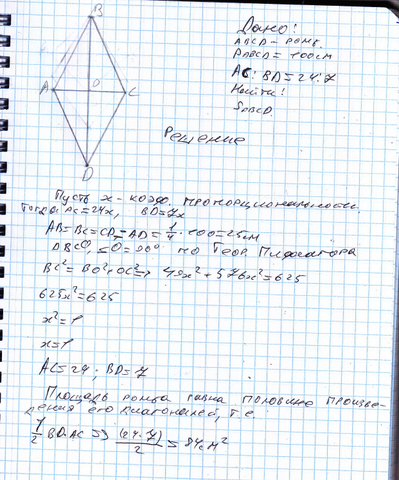 B
A
O
C
D
Дано:
ABCD - ромб.
PABCD = 100см
AC : BD = 24:7
Найти:
SABCD.
Решение
Пусть x - коэф. пропорциональности.
Тогда AC = 24x, BD = 7x
AB=BC=CD=AD= 1/4 · 100 = 25см
ΔBCO, ∠O = 90° по Теор. Пифагора
BC² = BO² + OC² => 49x² + 576x² = 625
625x² = 625
x² = 1
x = 1
AC = 24; BD = 7
Площадь ромба равна половине произве-
дения его диагоналей, т.е.
1/2 BD·AC => (24·7)/2 = 84см²